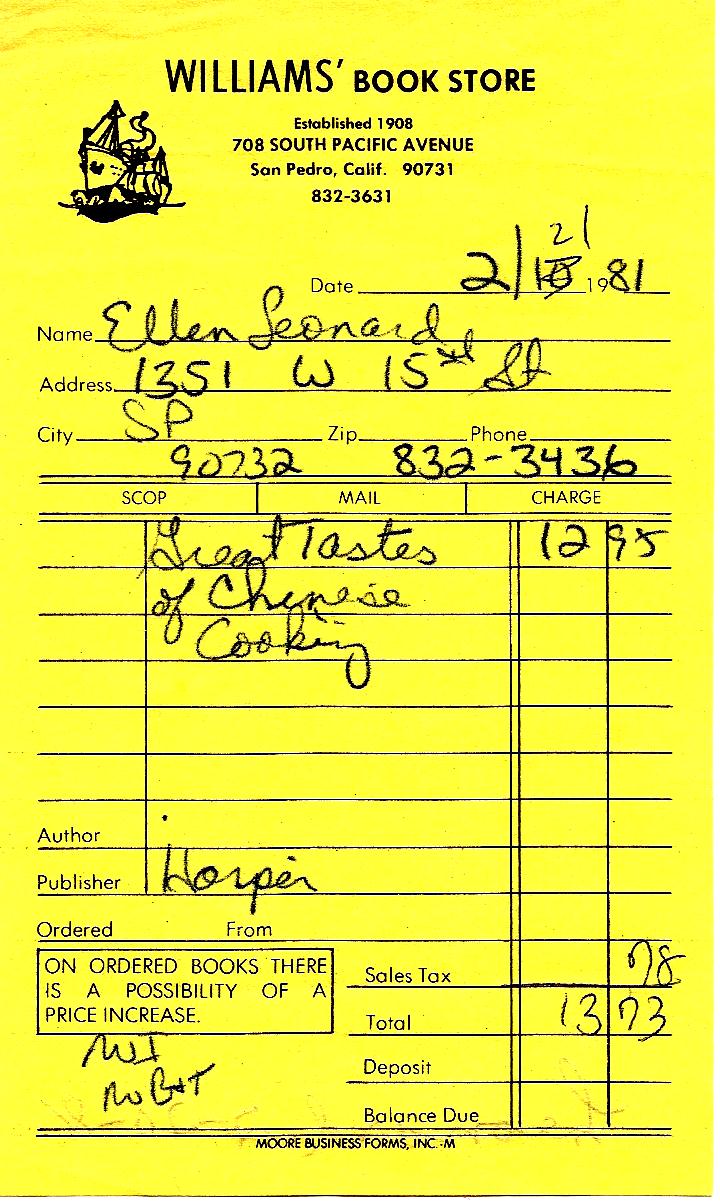 WILLIAMS' BOOK STORE
Established 1908
708 SOUTH PACIFIC AVENUE
San Pedro, Calif. 90731
832-3631
21
Date 2/18 1981
Name Ellen Leonard
Address 1351 W 15th St
City SP Zip Phone
90732 832-3436
SCOP MAIL CHARGE
Great Tastes 12 95
of Chinese
Cooking
Author
Publisher Harper
Ordered From
ON ORDERED BOOKS THERE
IS A POSSIBILITY OF A
PRICE INCREASE.
Sales Tax 78
Total 13 73
Deposit
Balance Due
MOORE BUSINESS FORMS, INC.-M